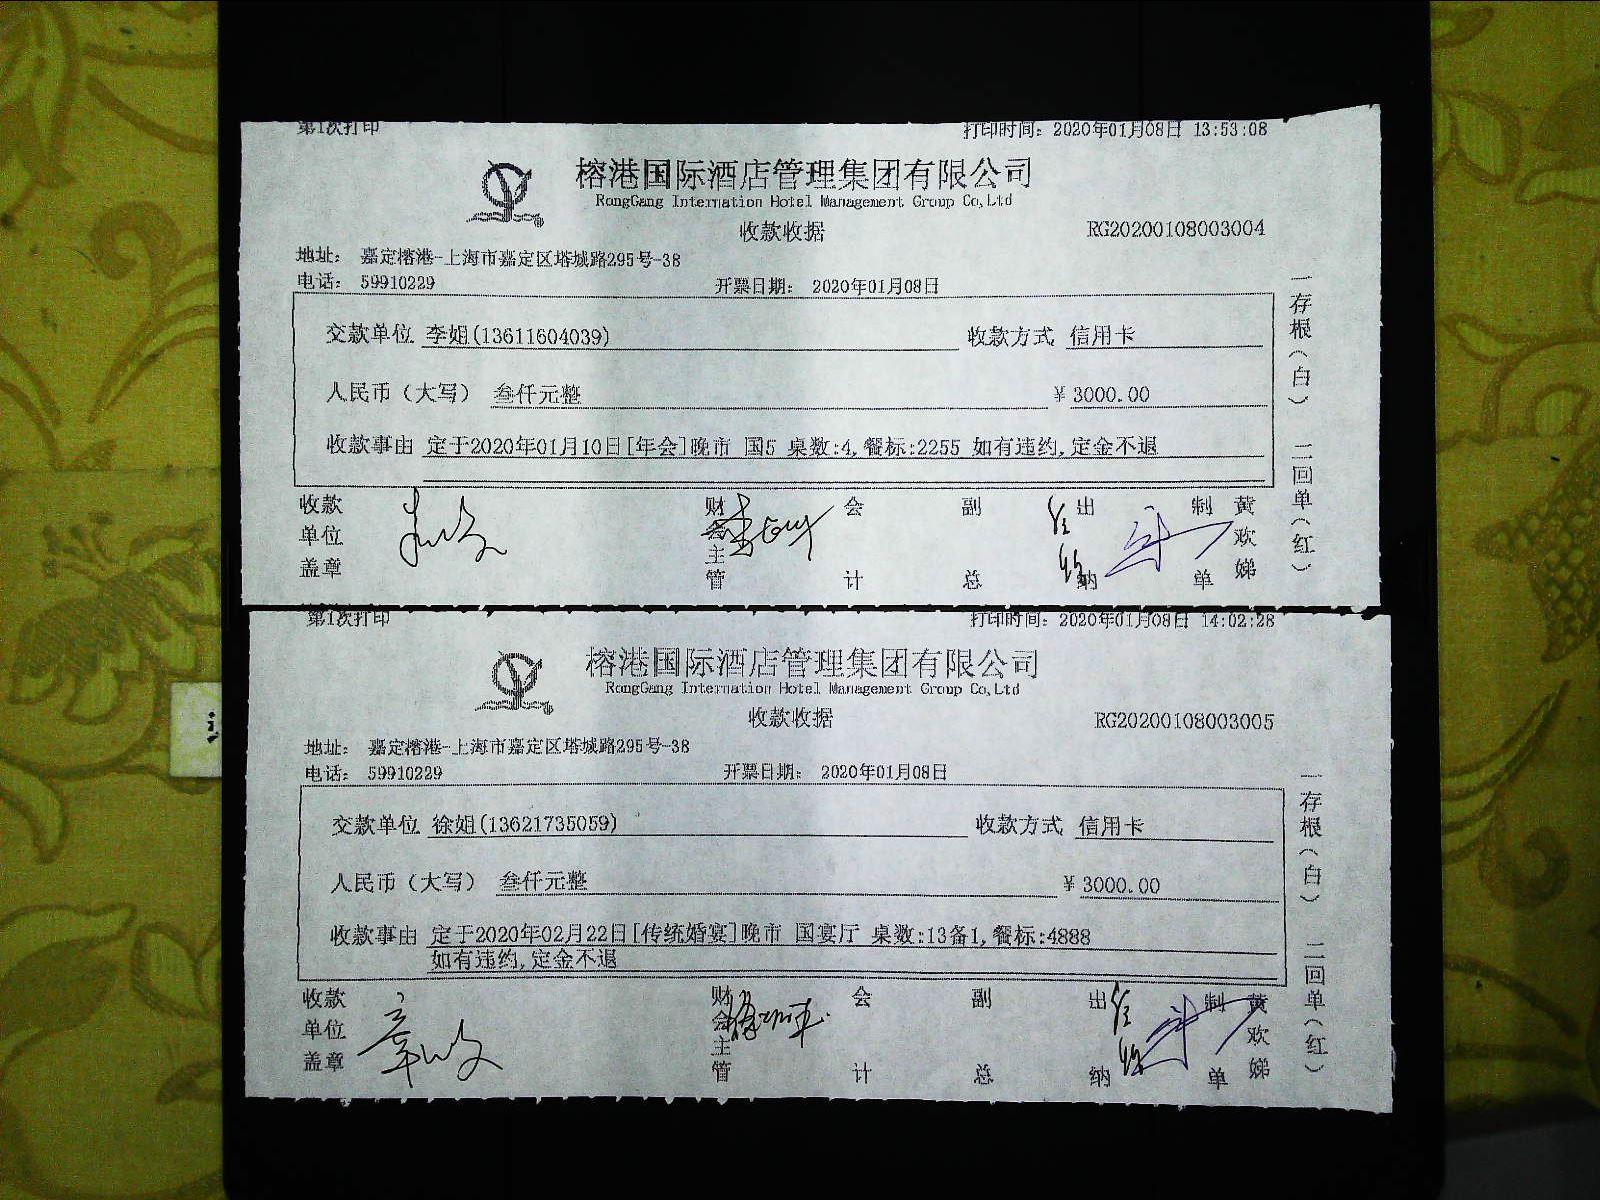 第1次打印 打印时间：2020年01月08日 13:53:08
榕港国际酒店管理集团有限公司
RongGang Internation Hotel Management Group Co,Ltd
收款收据 RG20200108003004
地址： 嘉定榕港-上海市嘉定区塔城路295号-38
电话： 59910229 开票日期： 2020年01月08日
交款单位 李姐(13611604039) 收款方式 信用卡
人民币（大写） 叁仟元整 ￥ 3000.00
收款事由 定于2020年01月10日[年会]晚市 国5 桌数:4,餐标:2255 如有违约,定金不退
收款单位盖章 财会主管 会计 副总 出纳 制单 黄欢娣
一存根（白） 二回单（红）
第1次打印 打印时间：2020年01月08日 14:02:28
榕港国际酒店管理集团有限公司
RongGang Internation Hotel Management Group Co,Ltd
收款收据 RG20200108003005
地址： 嘉定榕港-上海市嘉定区塔城路295号-38
电话： 59910229 开票日期： 2020年01月08日
交款单位 徐姐(13621735059) 收款方式 信用卡
人民币（大写） 叁仟元整 ￥ 3000.00
收款事由 定于2020年02月22日[传统婚宴]晚市 国宴厅 桌数:13备1,餐标:4888
如有违约,定金不退
收款单位盖章 财会主管 会计 副总 出纳 制单 黄欢娣
一存根（白） 二回单（红）